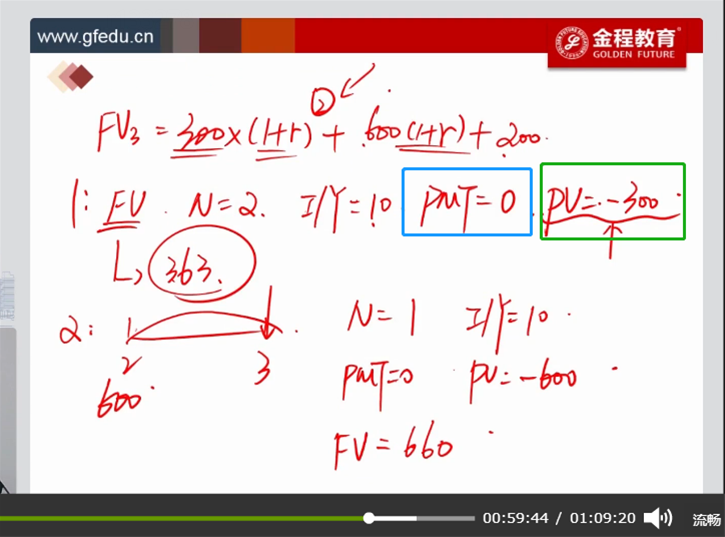 www.gfedu.cn
金程教育
GOLDEN FUTURE
FV₃ = 300×(1+r)② + 600(1+r) + 200
1: FV N=2. I/Y=10 PMT=0 PV=-300
↳ 363.
2: N=1 I/Y=10
2 3 PMT=0 PV=-600
600
FV=660
00:59:44 / 01:09:20 流畅